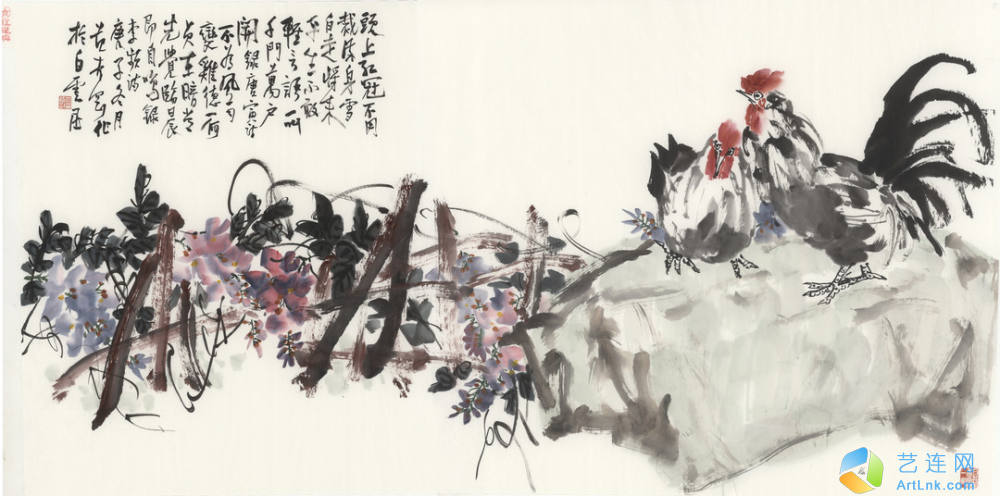 頭上紅冠不用
裁滿身雪
白走將來
平生不敢
輕言語一叫
千門萬戶
開 錄唐寅詩
不為風雨
變雞德一何
貞在暗長
先覺臨晨
即自鳴 錄
李頻詩
庚子冬月
於白雲居
艺连网
ArtLnk.com